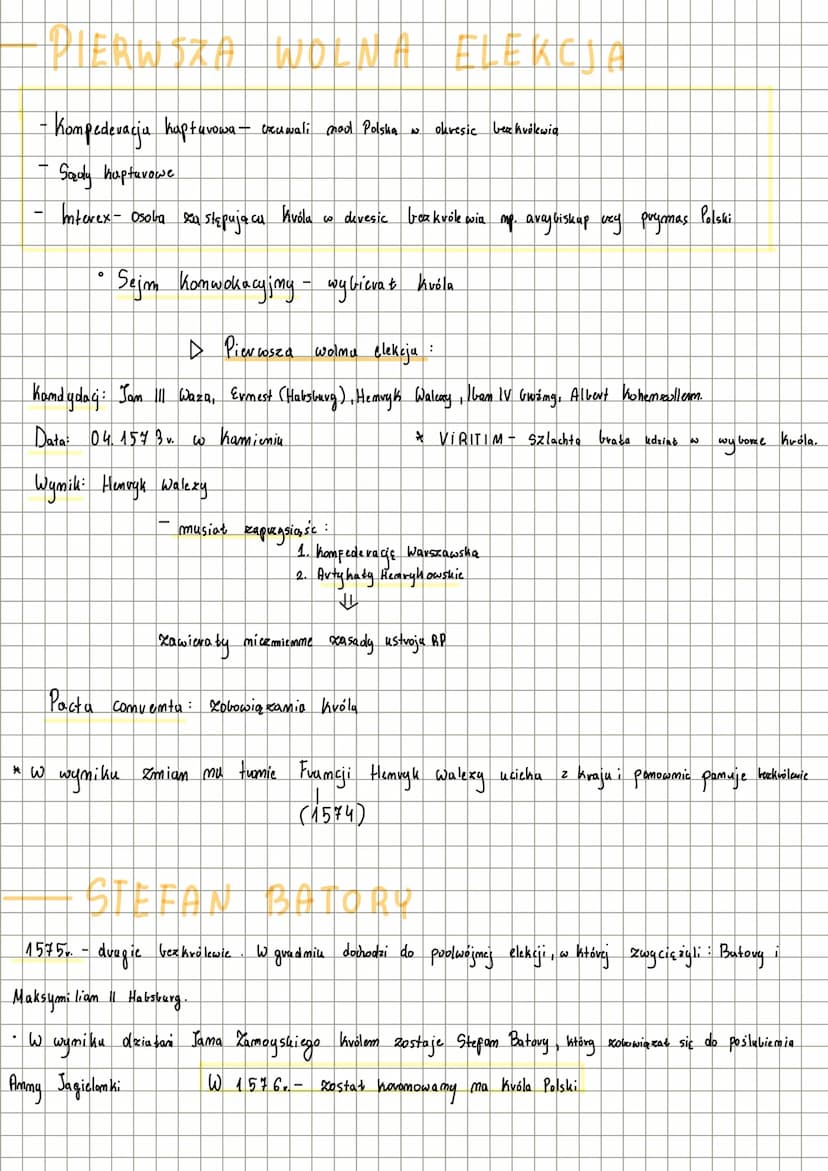 PIERWSZA WOLNA ELEKCJA
- Konfederacja kapturowa - czuwali nad Polską w okresie bezkrólewia
- Sądy kapturowe
- Interex - osoba zastępująca króla w okresie bezkrólewia np. arcybiskup czy prymas Polski
• Sejm konwokacyjny - wybierał króla
▷ Pierwsza wolna elekcja :
Kandydaci: Jan III Waza, Ernest (Habsburg), Henryk Walezy, Iwan IV Groźny, Albert Hohenzollern.
Data: 04. 1573 r. w Kamieniu
* VIRITIM - szlachta brała udział w wyborze króla.
Wynik: Henryk Walezy
- musiał zaprzysiąść :
1. Konfederację Warszawską
2. Artykuły Henrykowskie
⇓
zawierały niezmienne zasady ustroja RP
Pacta conventa : zobowiązania króla
* W wyniku zmian na tronie Francji Henryk Walezy ucieka z kraju i ponownie panuje bezkrólewie
(1574)
STEFAN BATORY
1575r. - drugie bezkrólewie. W grudniu dochodzi do podwójnej elekcji, w której zwyciężyli : Batory i
Maksymilian II Habsburg.
• W wyniku działań Jana Zamoyskiego królem zostaje Stefan Batory, który zobowiązał się do poślubienia
Anny Jagielonki
W 1576r. - został koronowany na króla Polski